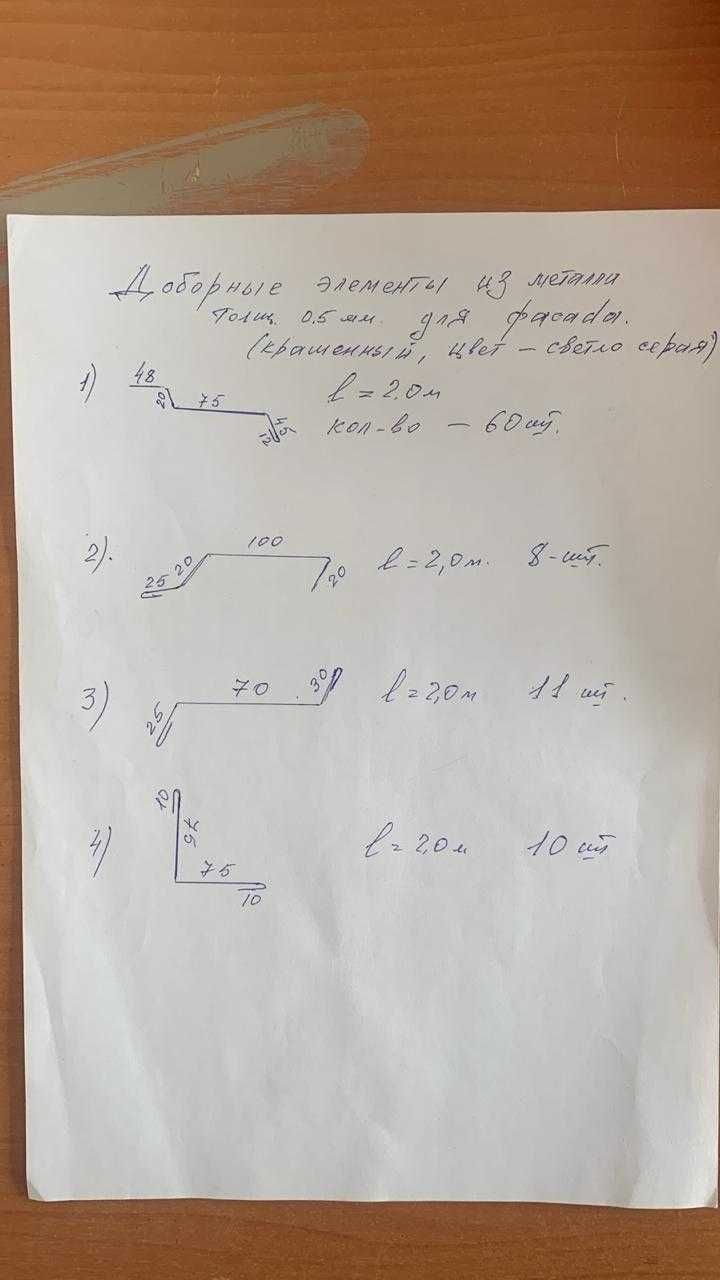 Доборные элементы из металла
толщ. 0.5 мм. для фасада.
(крашенный, цвет – светло серая)
1) 48 20 75 45 12 l = 2.0 м
кол-во – 60 шт.
2). 25 20 100 20 l = 2,0 м. 8 - шт.
3) 25 70 30 l = 2,0 м 11 шт.
4) 10 75 75 10 l = 2.0 м 10 шт